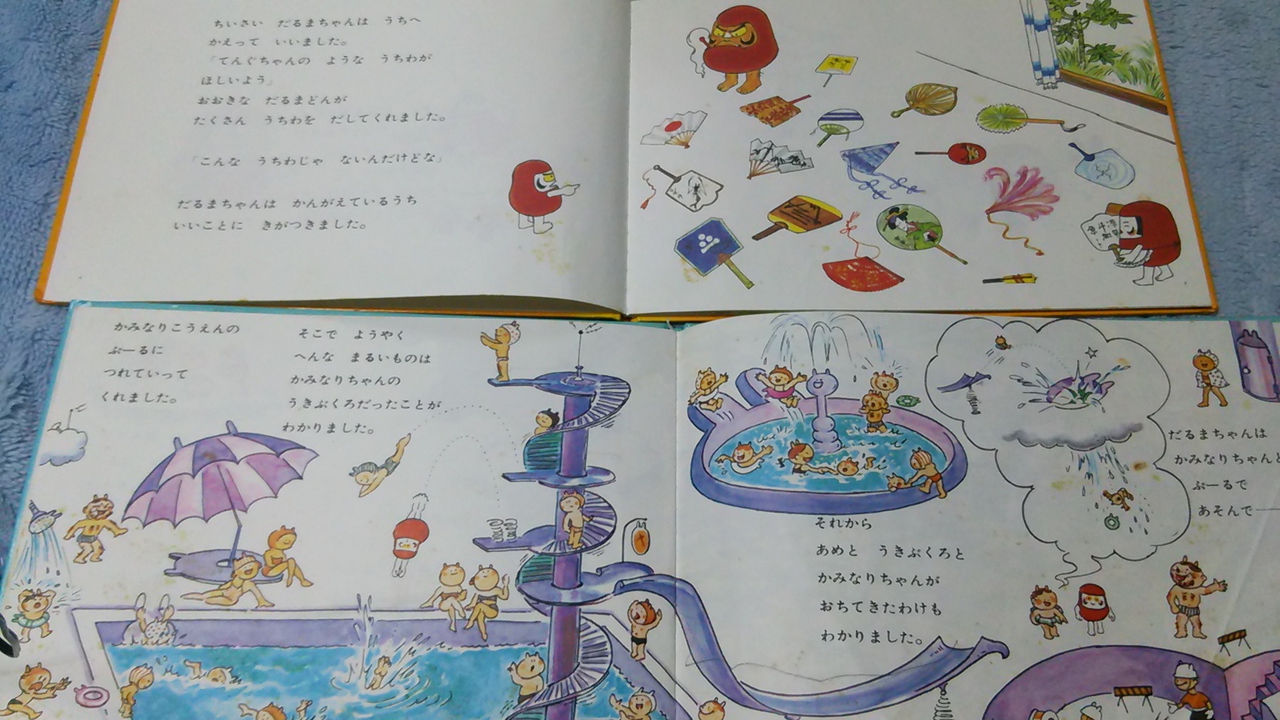 ちいさい だるまちゃんは うちへ
かえって いいました。
「てんぐちゃんの ような うちわが
ほしいよう」
おおきな だるまどんが
たくさん うちわを だしてくれました。
「こんな うちわじゃ ないんだけどな」
だるまちゃんは かんがえているうち
いいことに きがつきました。
かみなりこうえんの
ぷーるに
つれていって
くれました。
そこで ようやく
へんな まるいものは
かみなりちゃんの
うきぶくろだったことが
わかりました。
それから
あめと うきぶくろと
かみなりちゃんが
おちてきたわけも
わかりました。
だるまちゃんは
かみなりちゃんと
ぷーるで
あそんで―